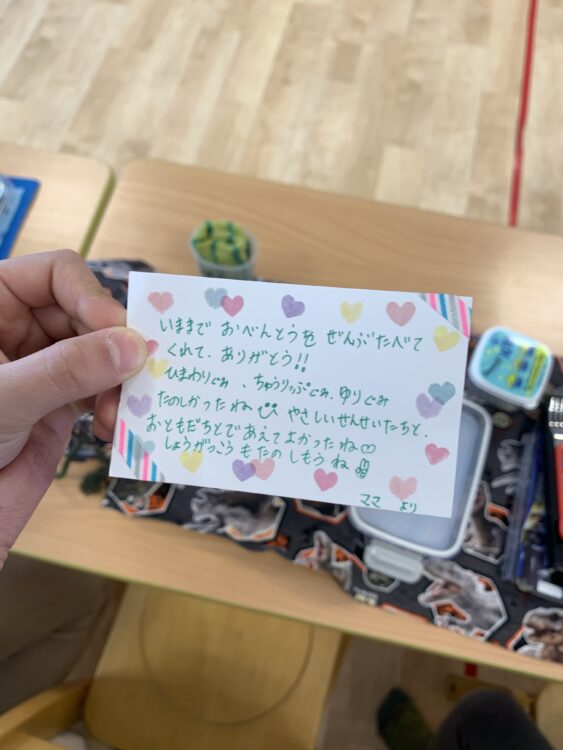 いままで おべんとうを ぜんぶたべて
くれて、ありがとう!!
ひまわりぐみ、ちゅうりっぷぐみ、ゆりぐみ
たのしかったね やさしいせんせいたちと、
おともだちとで あえてよかったね
しょうがっこう も たのしもうね
ママ より